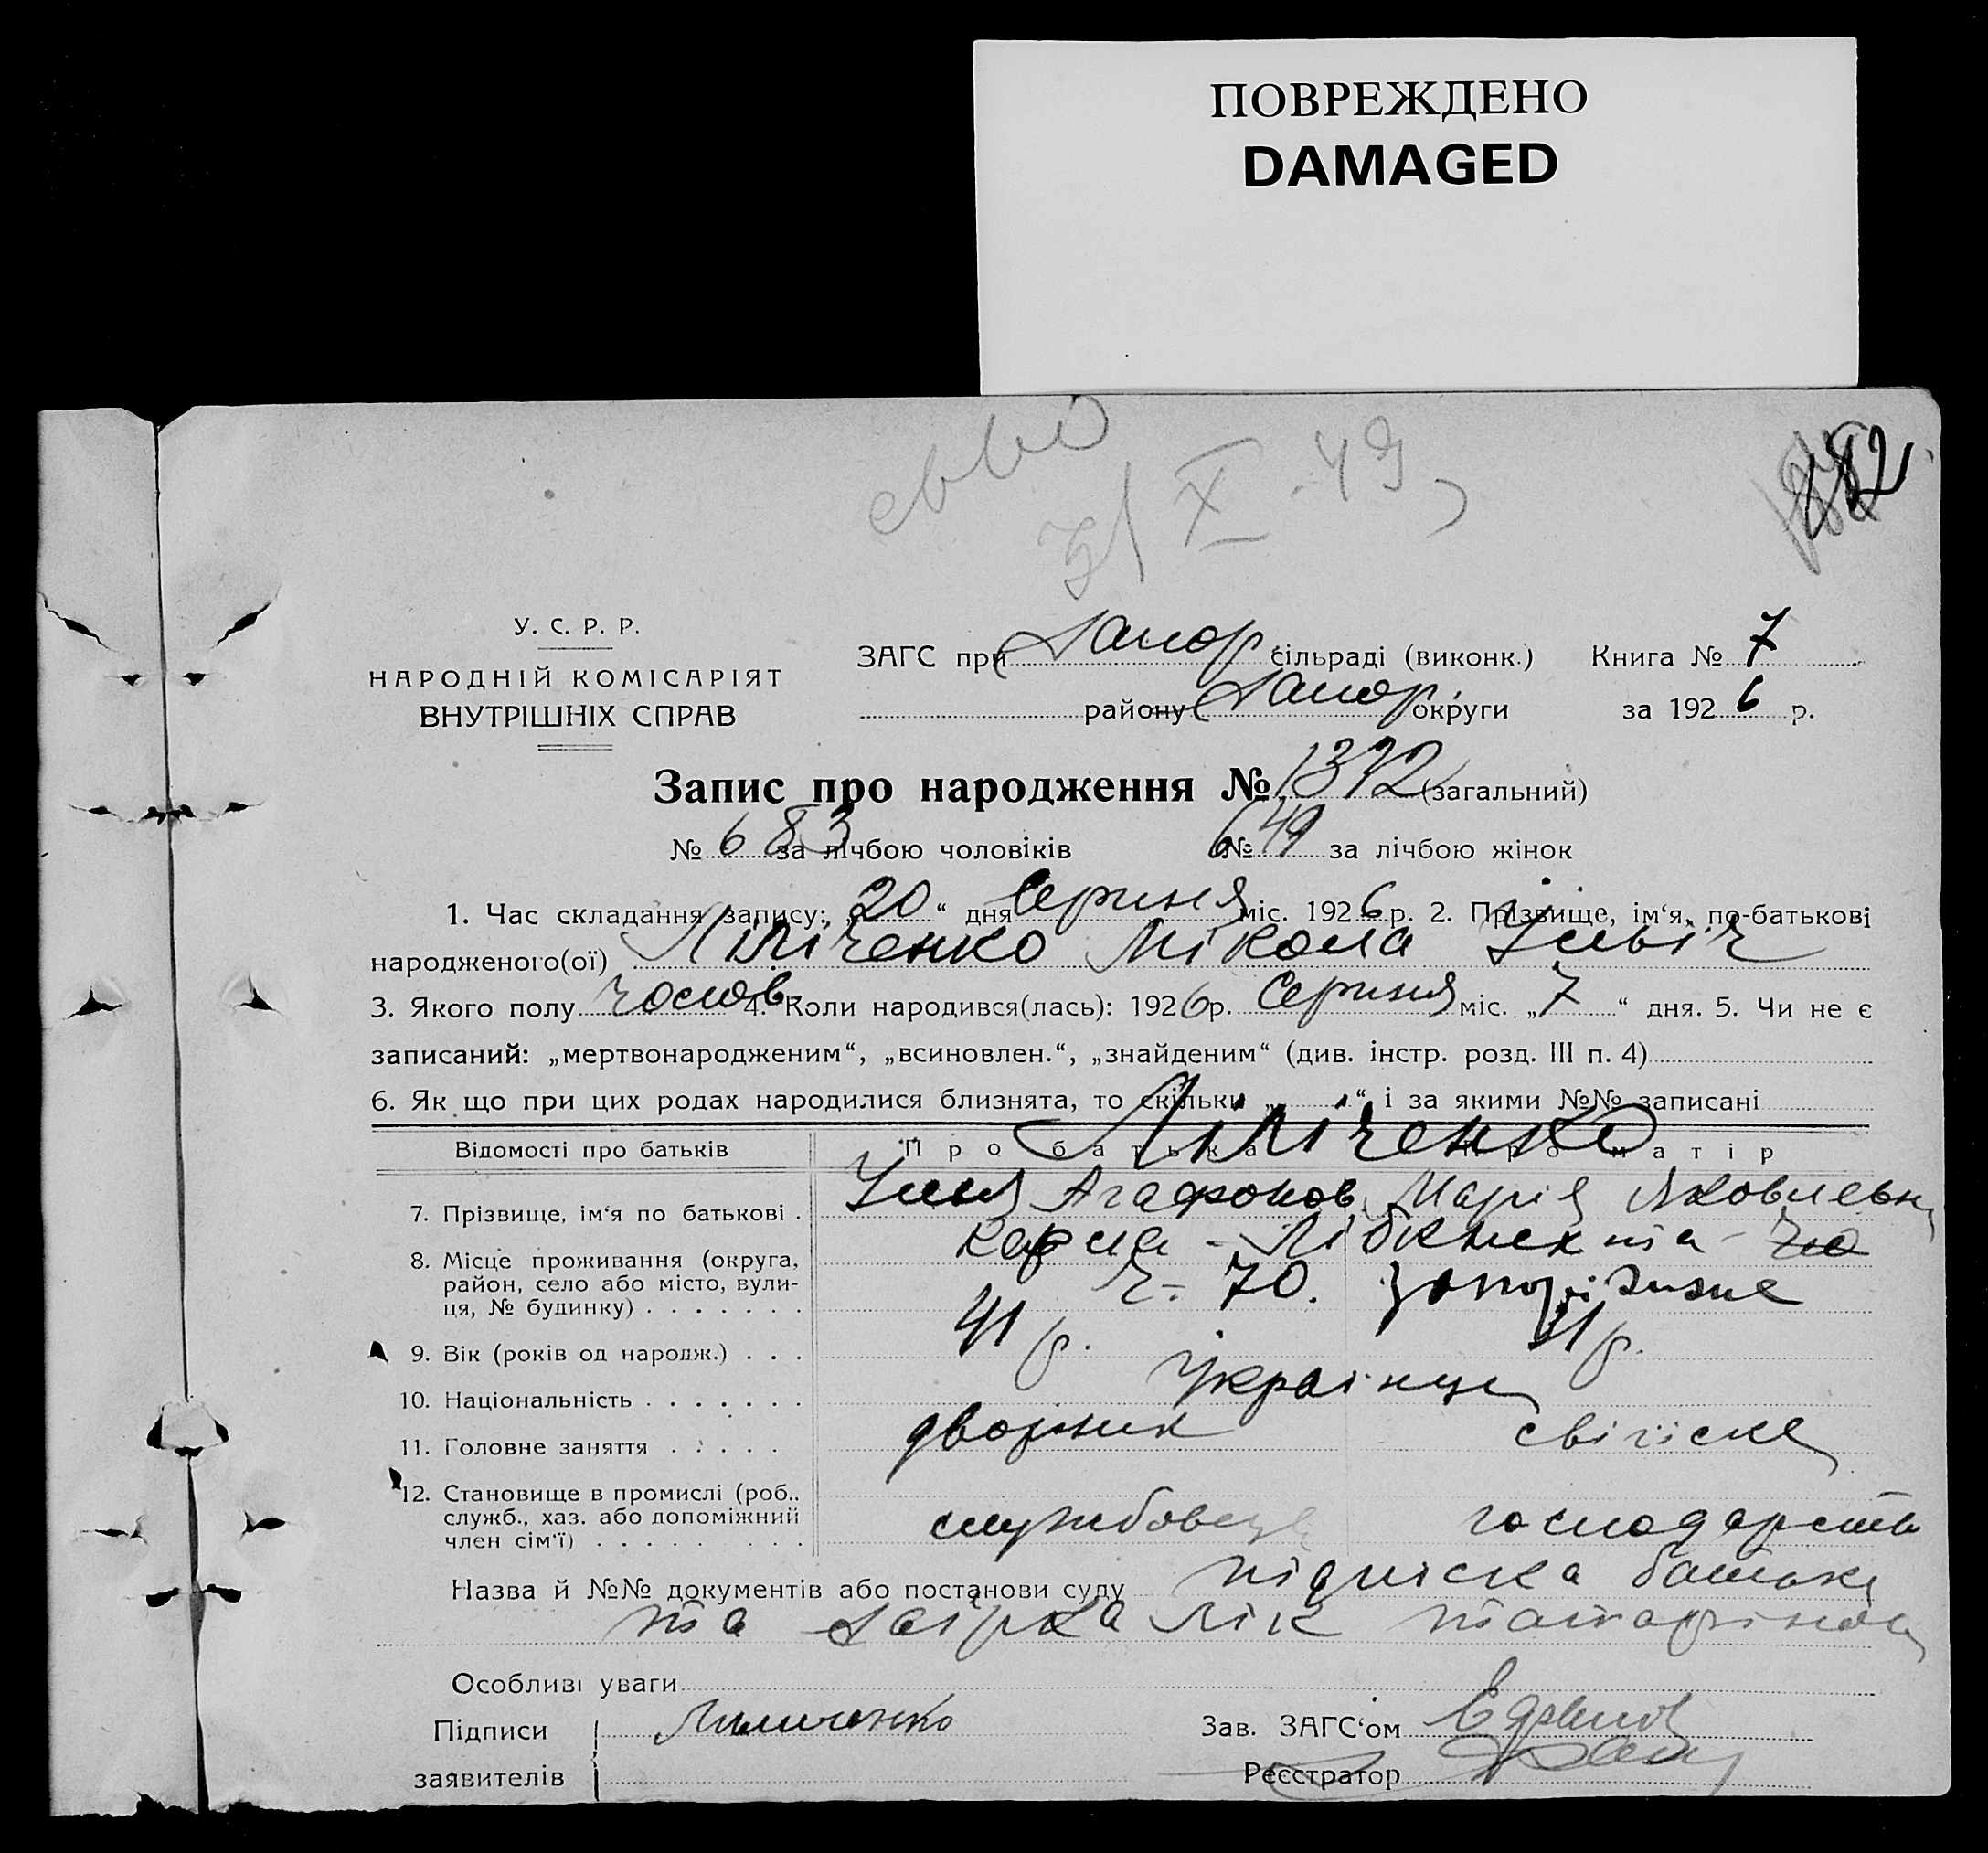 ПОВРЕЖДЕНО
DAMAGED
X 49
182
У. С. Р. Р.
НАРОДНІЙ КОМІСАРІЯТ
ВНУТРІШНІХ СПРАВ
ЗАГС при Запор сільраді (виконк.) Книга № 7
району Запор. округи за 1926 р.
Запис про народження № 1372 (загальний)
№ 683 за лічбою чоловіків № 649 за лічбою жінок
1. Час складання запису: „20“ дня Серпня міс. 1926 р. 2. Прізвище, ім‘я, по-батькові
народженого(ої) Ліпіченко Мікола Ільіч
3. Якого полу чолов. 4. Коли народився(лась): 1926 р. Серпня міс. „7“ дня. 5. Чи не є
записаний: „мертвонародженим“, „всиновлен.“, „знайденим“ (див. інстр. розд. III п. 4)
6. Як що при цих родах народилися близнята, то скільки „ “ і за якими №№ записані
Відомості про батьків Про батька Про матір
Ліпіченко
7. Прізвище, ім‘я по батькові . Ілья Агафонов Марія Яковлевна
8. Місце проживання (округа, район, село або місто, вулиця, № будинку) Карла - Лібкнехта
ч. 70. Запоріжжє
9. Вік (років од народж.) . . . 41 р. 41 р.
10. Національність Українці
11. Головне заняття дворник свійске
12. Становище в промислі (роб., служб., хаз. або допоміжний член сім‘ї) службовець господарств
Назва й №№ документів або постанови суду підпіска батька
та
Особливі уваги
Підписи заявителів Липиченко
Зав. ЗАГС‘ом
Реєстратор